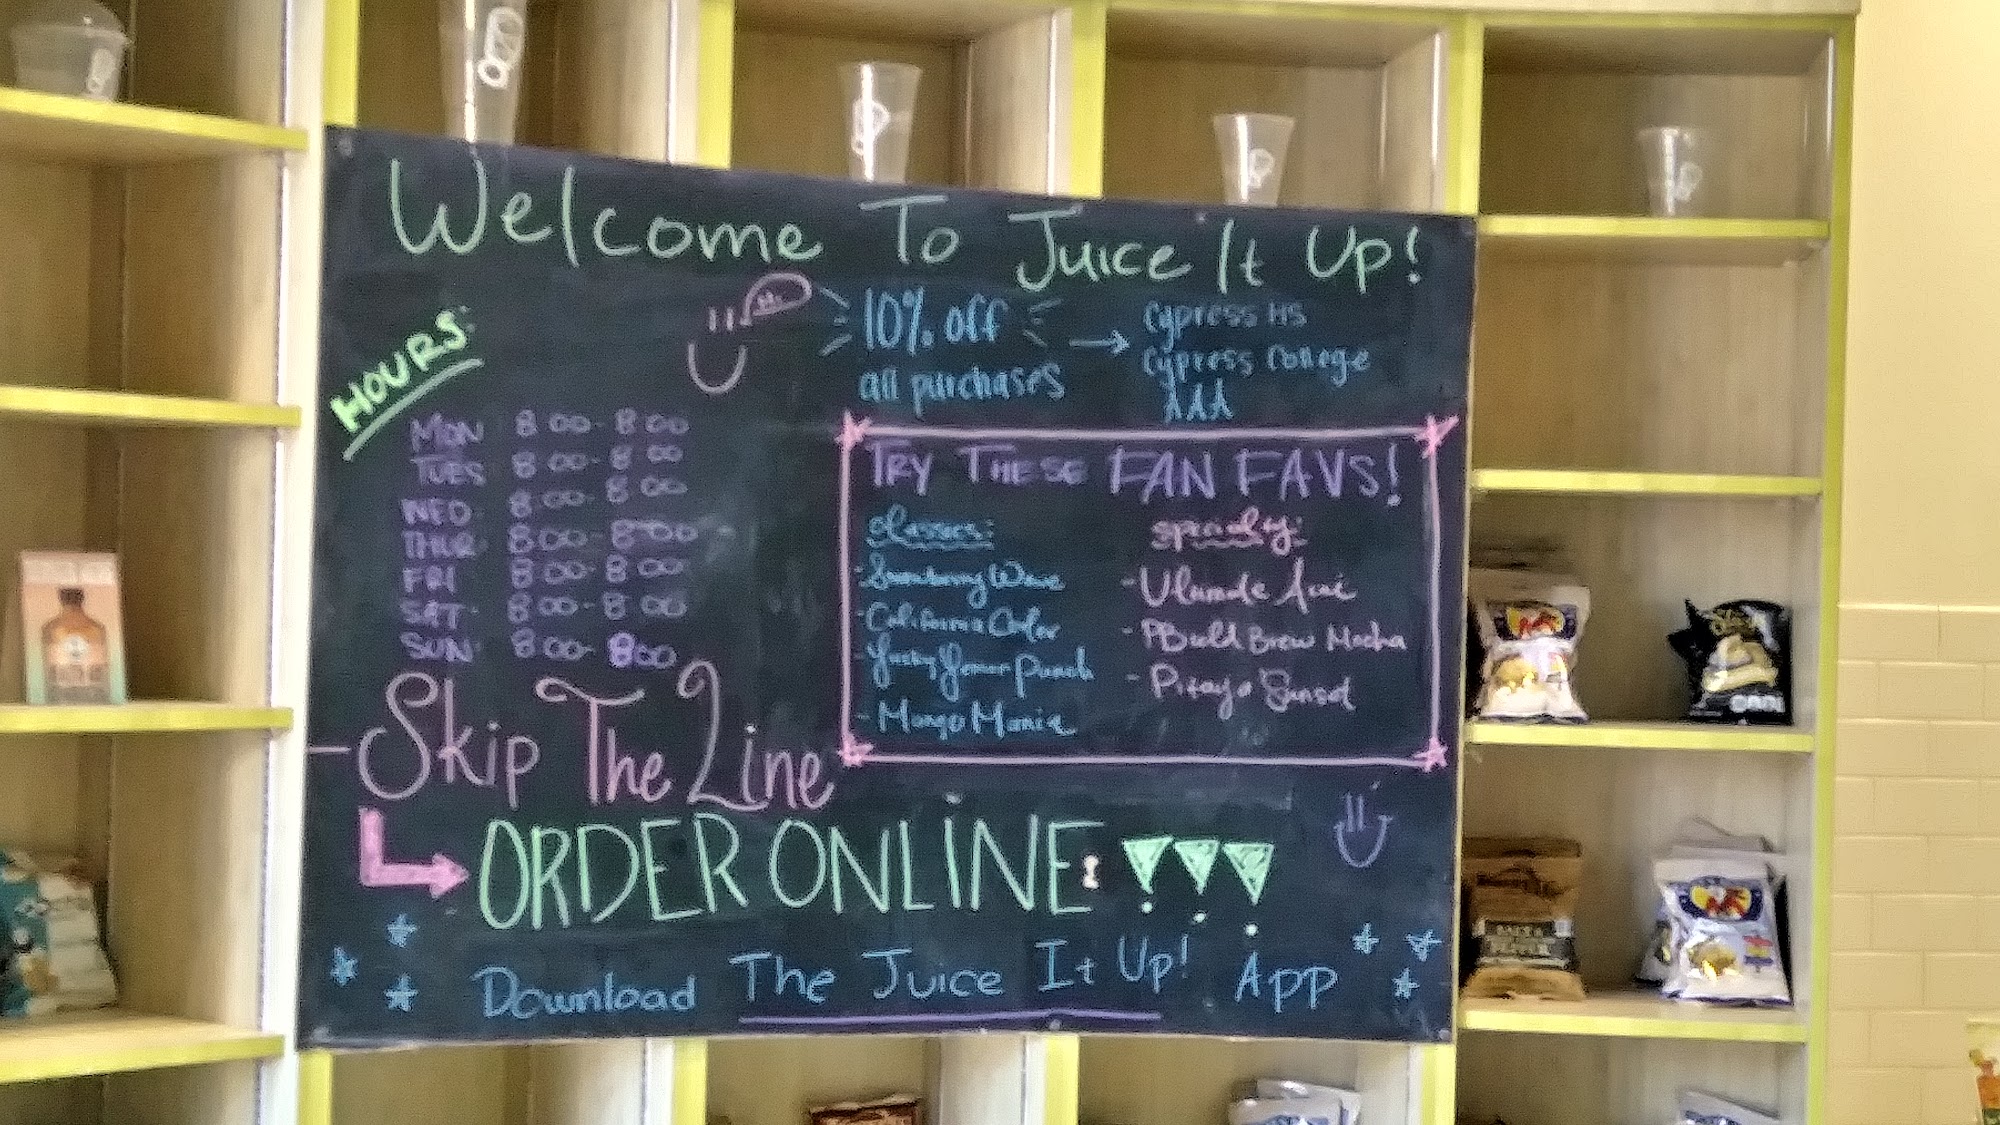 Welcome To Juice It Up!
Hi
10% off
all purchases
Cypress HS
Cypress College
AAA
HOURS:
MON 8:00-8:00
TUES 8:00-8:00
WED 8:00-8:00
THUR 8:00-8:00
FRI 8:00-8:00
SAT 8:00-8:00
SUN 8:00-8:00
TRY THESE FAN FAVS!
Classics:
-Strawberry Wave
-California Color
-Mango Mania
Specialty:
-Ultimate Acai
-PBuld Brew Mocha
-Pitaya Sunset
Skip The Line
ORDER ONLINE
Download The Juice It Up! App